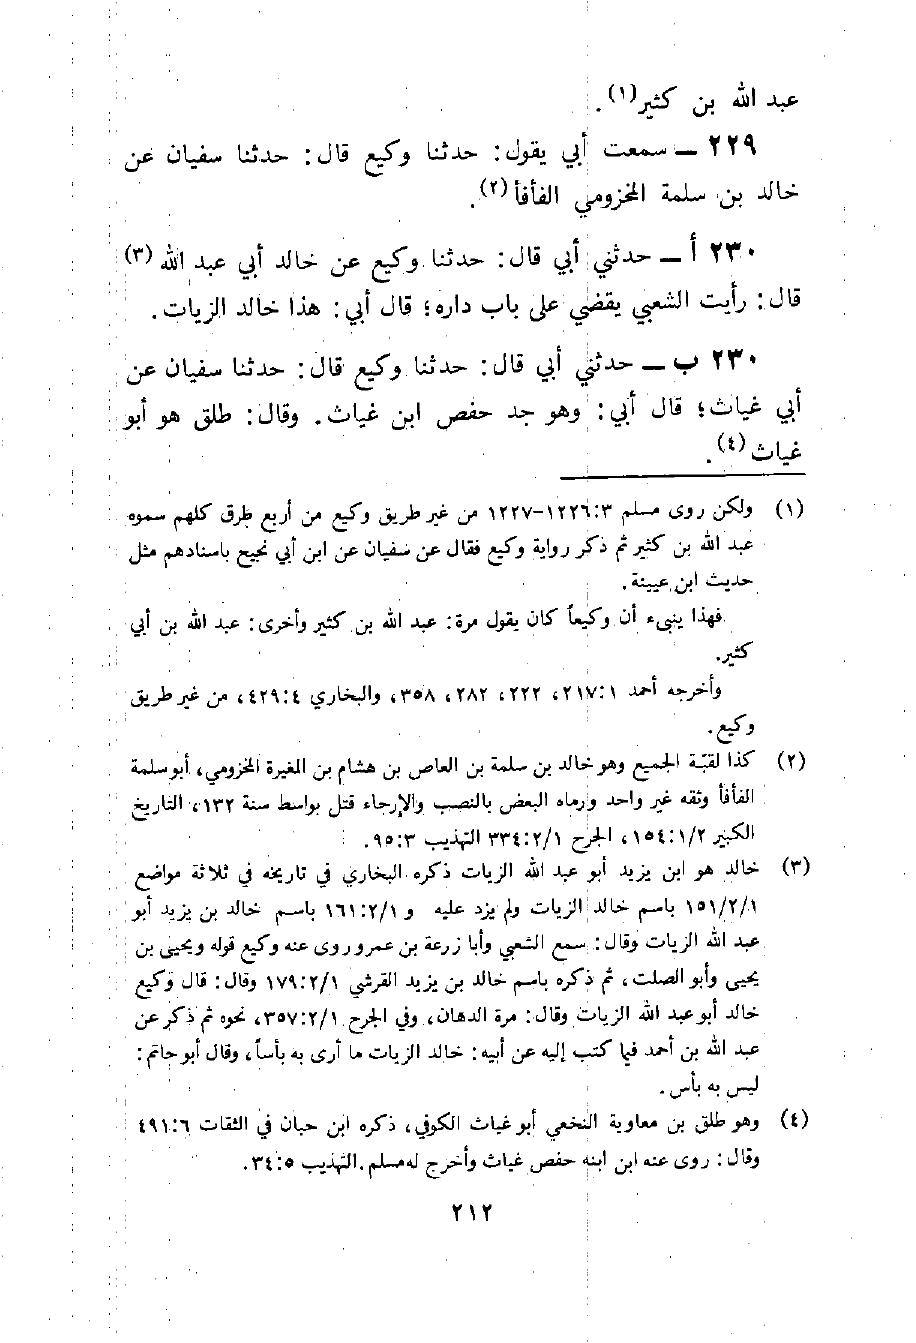 عبد الله بن كثير(١).
٢٢٩ ــ سمعت أبي يقول: حدثنا وكيع قال: حدثنا سفيان عن
خالد بن سلمة المخزومي الفأفأ(٢).
٢٣٠ أ ــ حدثني أبي قال: حدثنا وكيع عن خالد أبي عبد الله(٣)
قال: رأيت الشعبي يقضي على باب داره؛ قال أبي: هذا خالد الزيات.
٢٣٠ ب ــ حدثني أبي قال: حدثنا وكيع قال: حدثنا سفيان عن
أبي غياث؛ قال أبي: وهو جد حفص ابن غياث. وقال: طلق هو أبو
غياث(٤).
(١) ولكن روى مسلم ٣:١٢٢٦-١٢٢٧ من غير طريق وكيع من أربع طرق كلهم سموه
عبد الله بن كثير ثم ذكر رواية وكيع فقال عن سفيان عن ابن أبي نجيح باسنادهم مثل
حديث ابن عيينة.
فهذا ينبىء أن وكيعاً كان يقول مرة: عبد الله بن كثير وأخرى: عبد الله بن أبي
كثير.
وأخرجه أحمد ١:٢١٧، ٢٢٢، ٢٨٢، ٣٥٨، والبخاري ٤:٤٢٩، من غير طريق
وكيع.
(٢) كذا لقبّة الجميع وهو خالد بن سلمة بن العاص بن هشام بن المغيرة المخزومي، أبو سلمة
الفأفأ وثقه غير واحد ورماه البعض بالنصب والإرجاء قتل بواسط سنة ١٣٢، التاريخ
الكبير ١/٢:١٥٤، الجرح ٢/١:٣٣٤ التهذيب ٣:٩٥.
(٣) خالد هو ابن يزيد أبو عبد الله الزيات ذكره البخاري في تاريخه في ثلاثة مواضع
١٥١/٢/١ باسم خالد الزيات ولم يزد عليه و ٢/١:١٦١ باسم خالد بن يزيد أبو
عبد الله الزيات وقال: سمع الشعبي وأبا زرعة بن عمرو روى عنه وكيع قوله ويحيى بن
يحيى وأبو الصلت، ثم ذكره باسم خالد بن يزيد القرشي ٢/١:١٧٩ وقال: قال وكيع
خالد أبو عبد الله الزيات وقال: مرة الدهان، وفي الجرح ٢/١:٣٥٧، نحوه ثم ذكر عن
عبد الله بن أحمد فيما كتب إليه عن أبيه: خالد الزيات ما أرى به بأساً، وقال أبو حاتم:
ليس به بأس.
(٤) وهو طلق بن معاوية النخعي أبو غياث الكوفي، ذكره ابن حبان في الثقات ٦:٤٩١
وقال: روى عنه ابن ابنه حفص غياث وأخرج له مسلم. التهذيب ٥:٣٤.
٢١٢